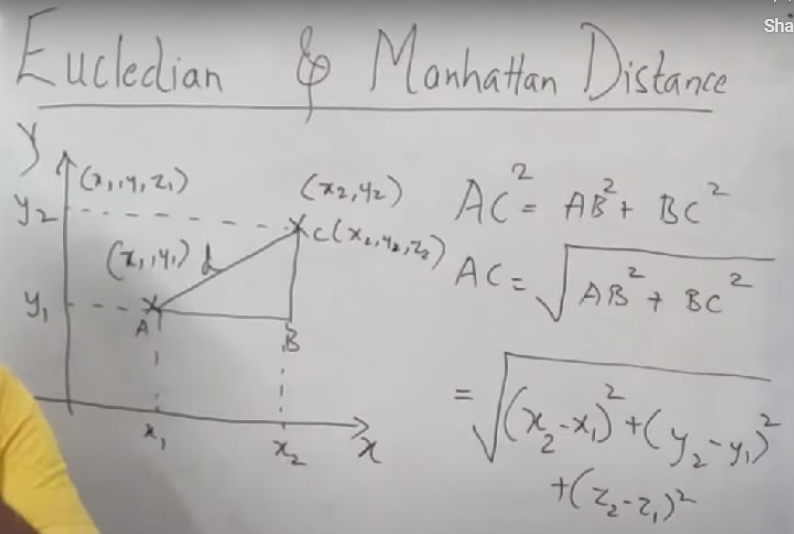 Sha
Eucledian & Manhattan Distance
y
(x₁,y₁,z₁)
(x₂,y₂)
y₂
C(x₂,y₂,z₂)
(x₁,y₁) d
y₁
A
B
x₁
x₂
x
AC² = AB² + BC²
AC = √AB² + BC²
= √(x₂-x₁)² + (y₂-y₁)²
+(z₂-z₁)²